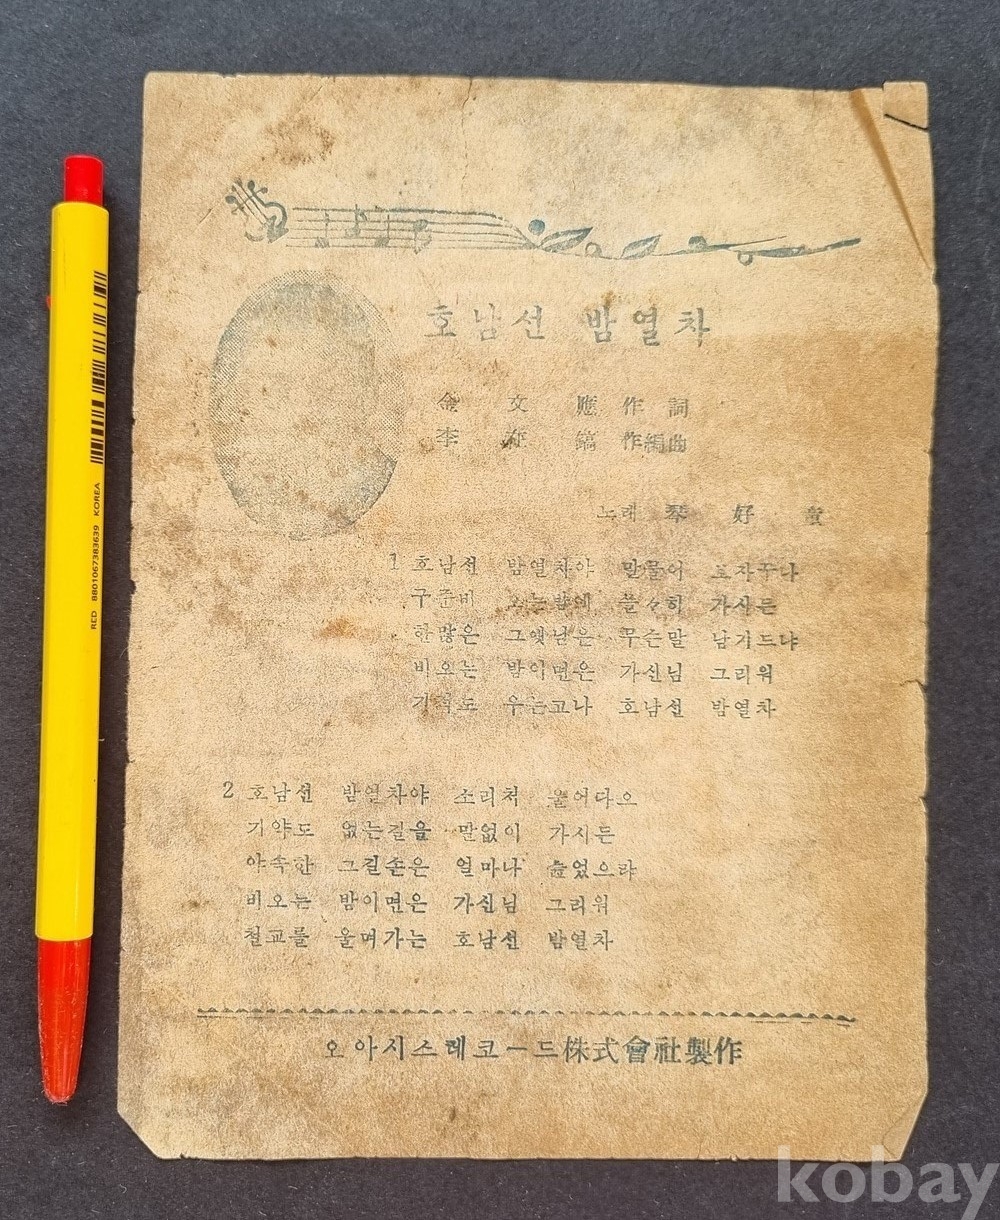 호남선 밤열차
金文應 作詞
李 鎬 作編曲
노래 琴好童
1 호남선 밤열차야 말물어 보자구나
구준비 오는밤에 쓸々히 가시든
한많은 그옛님은 무슨말 남기드냐
비오는 밤이면은 가신님 그리워
기적도 우는고나 호남선 밤열차
2 호남선 밤열차야 소리처 울어다오
기약도 없는길을 말없이 가시든
야속한 그길손은 얼마나 늙었으랴
비오는 밤이면은 가신님 그리워
철교를 울며가는 호남선 밤열차
오아시스레코ー드株式會社製作
RED 8801067383639 KOREA
kobay